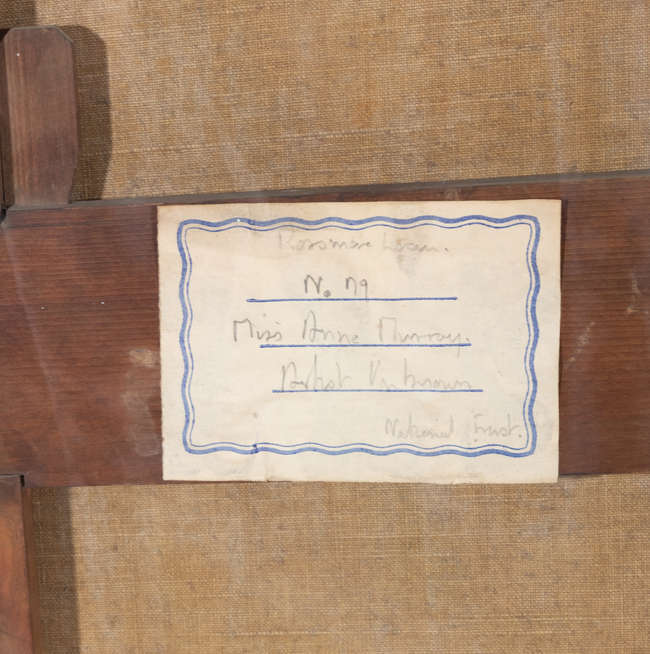 Rossmore Loan.
No 79
Miss Anne Murray.
Artist Unknown
National Trust.